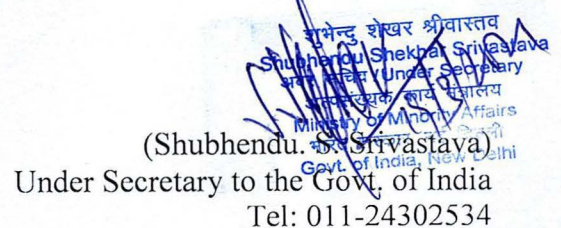 शुभेन्दु शेखर श्रीवास्तव
Shubhendu Shekhar Srivastava
अवर सचिव /Under Secretary
अल्पसंख्यक कार्य मंत्रालय
Ministry of Minority Affairs
भारत
Govt. of India, New Delhi
(Shubhendu. S. Srivastava)
Under Secretary to the Govt. of India
Tel: 011-24302534